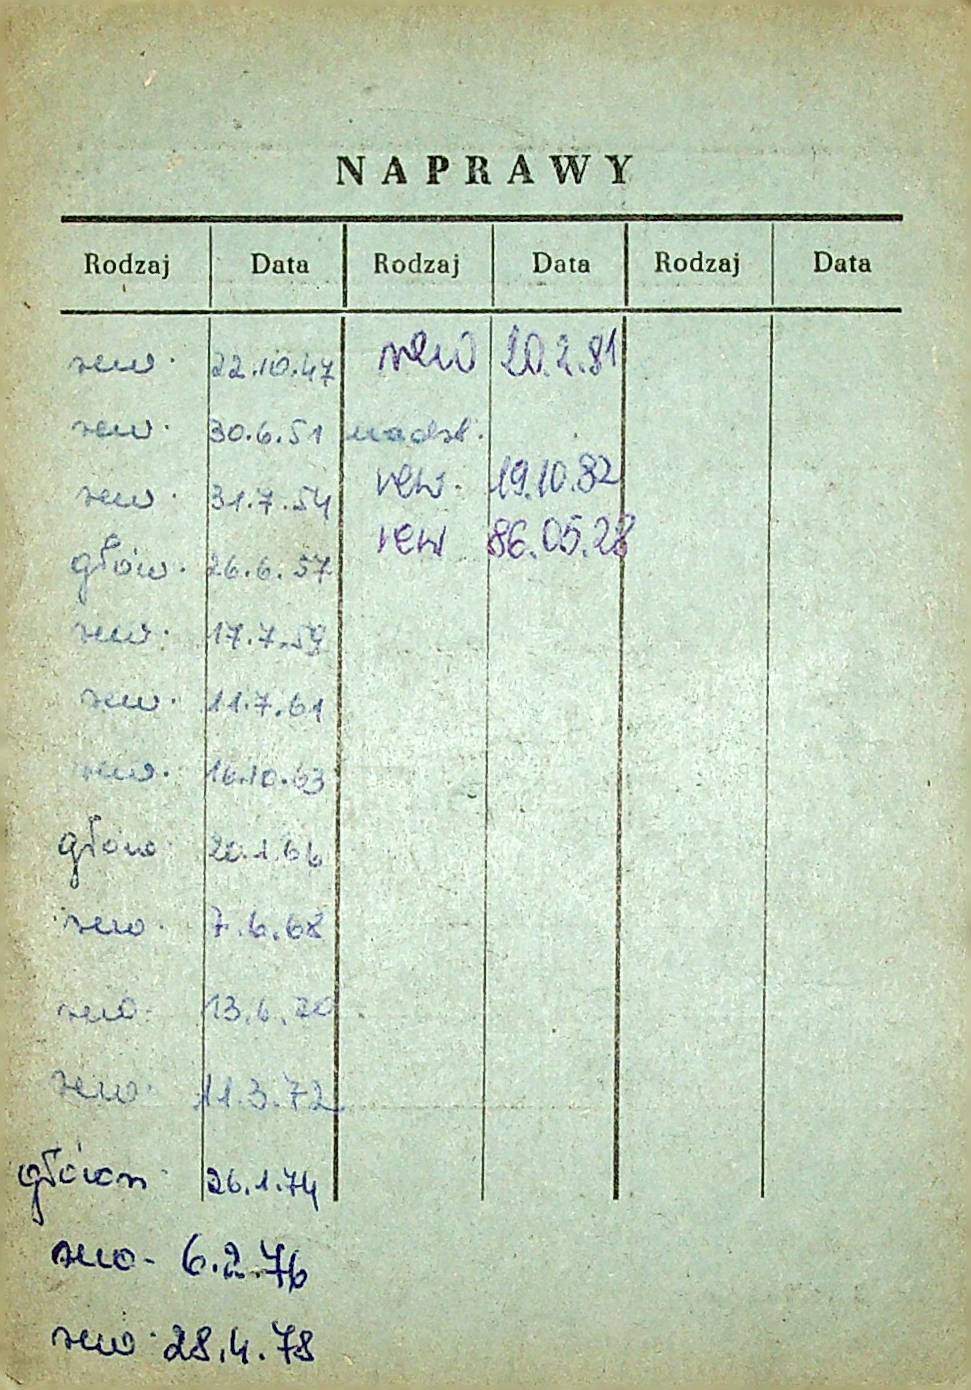 NAPRAWY
Rodzaj Data Rodzaj Data Rodzaj Data
rew. 22.10.47 rew 20.2.81
rew. 30.6.51 nadst.
rew. 31.7.54 rew. 19.10.82
głów. 26.6.57 rew 86.05.28
rew. 17.7.59
rew. 11.7.61
rew. 16.10.63
głow. 20.1.66
rew. 7.6.68
rew. 13.6.70
rew. 11.3.72
główn. 26.1.74
rew. 6.2.76
rew. 28.4.78